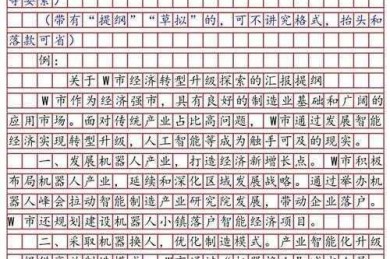 等要素）
（带有“提纲”“草拟”的，可不讲究格式，抬头和
落款可省）
例：
关于W市经济转型升级探索的汇报提纲
W市作为经济强市，具有良好的制造业基础和广阔的
应用市场。面对传统产业占比高问题，W市通过发展智能
经济实现转型升级，人工智能等成为触手可及的现实。
一、发展机器人产业，打造经济新增长点。W市积极
布局机器人产业，延续和深化区域发展战略。通过举办机
器人峰会拉动智能制造产业研究院发展，带动企业落户。
W市还规划建设机器人小镇落户智能经济项目。
二、采取机器换人，优化制造模式。产业智能化升级